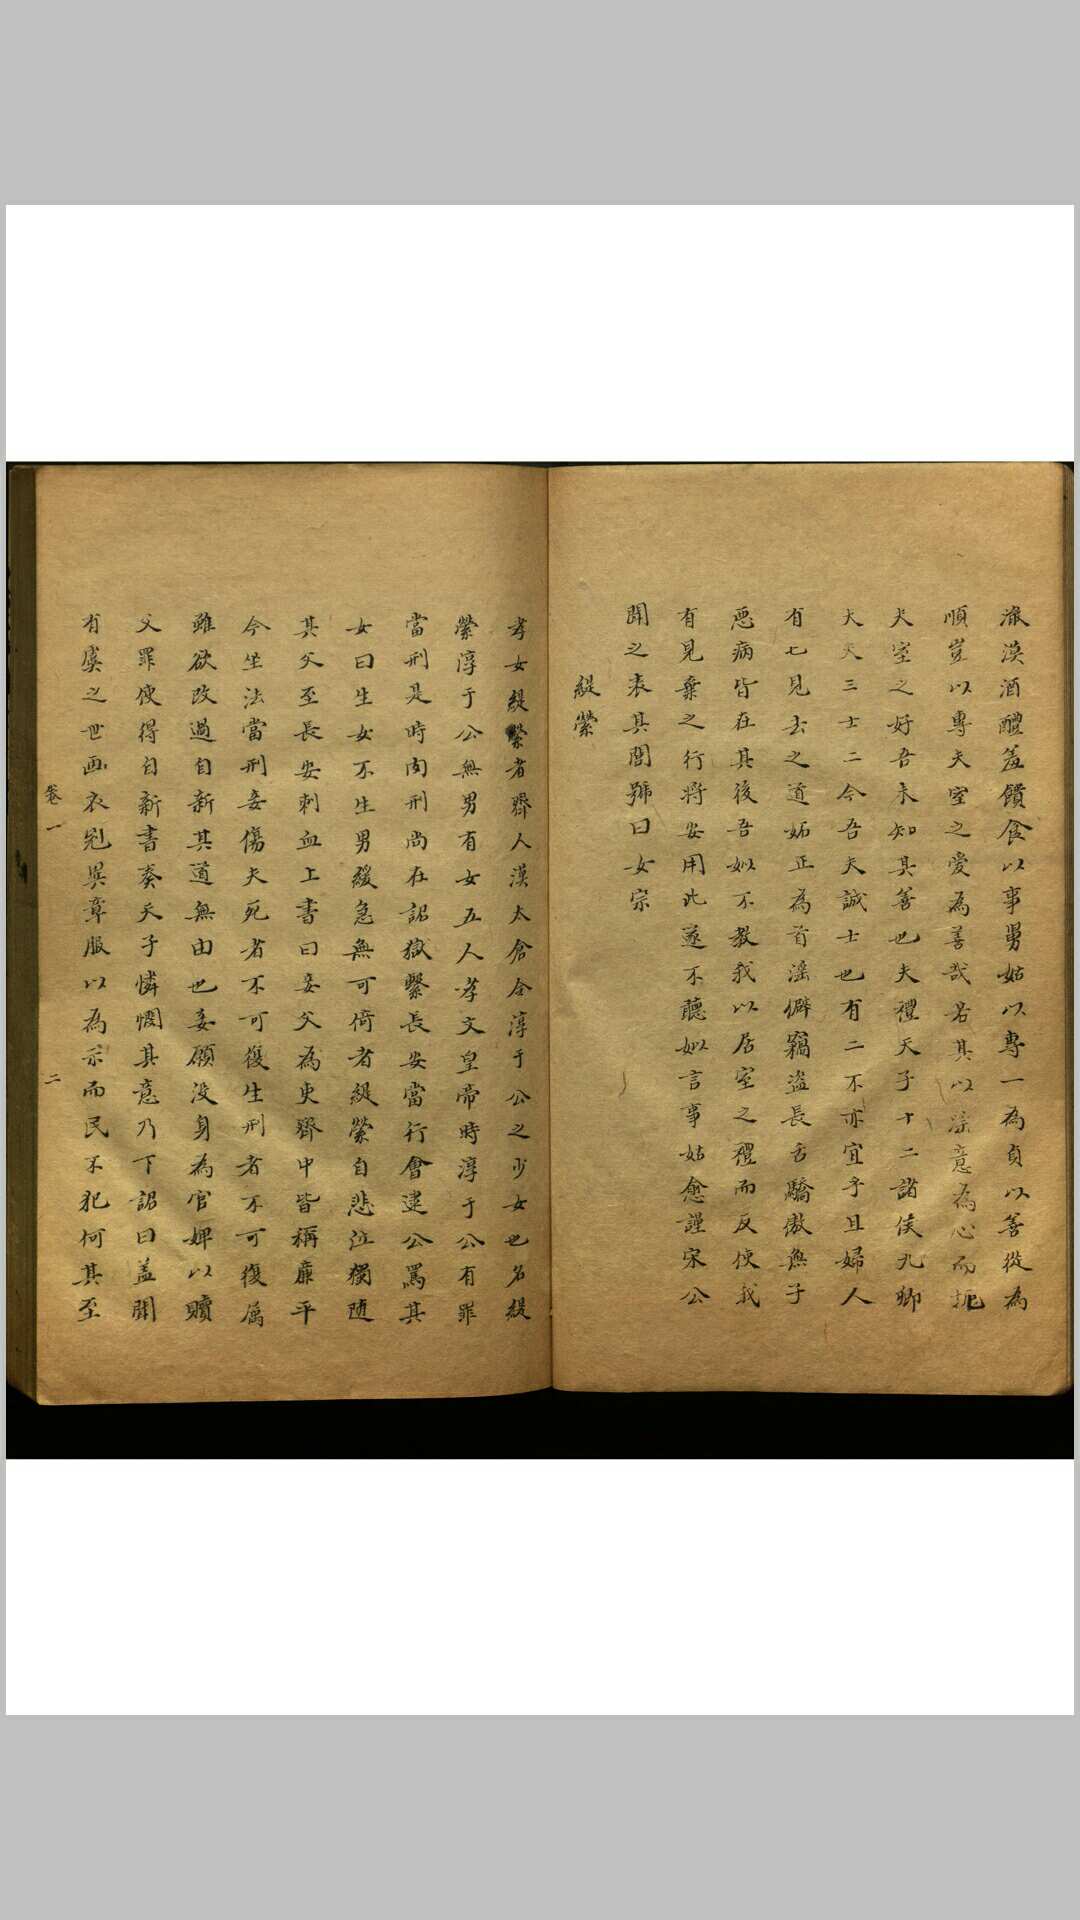 澈漠酒醴羞饋食以事舅姑以專一為貞以善從為
順豈以專夫室之愛為善哉若其以淫意為心而扼
夫室之好吾未知其善也夫禮天子十二諸侯九卿
大夫三士二今吾夫誠士也有二不亦宜乎且婦人
有七見去之道妬正為首淫僻竊盜長舌驕傲無子
惡病皆在其後吾姒不教我以居室之禮而反使我
有見棄之行將安用此遂不聽姒言事姑愈謹宋公
聞之表其閭號曰女宗
緹縈
孝女緹縈者齊人漢太倉令淳于公之少女也名緹
縈淳于公無男有女五人孝文皇帝時淳于公有罪
當刑是時肉刑尚在詔獄繫長安當行會逮公罵其
女曰生女不生男緩急無可倚者緹縈自悲泣獨隨
其父至長安刺血上書曰妾父為吏齊中皆稱廉平
今坐法當刑妾傷夫死者不可復生刑者不可復屬
雖欲改過自新其道無由也妾願没身為官婢以贖
父罪使得自新書奏天子憐憫其意乃下詔曰盖聞
有虞之世画衣剋異章服以為示而民不犯何其至
卷一 二